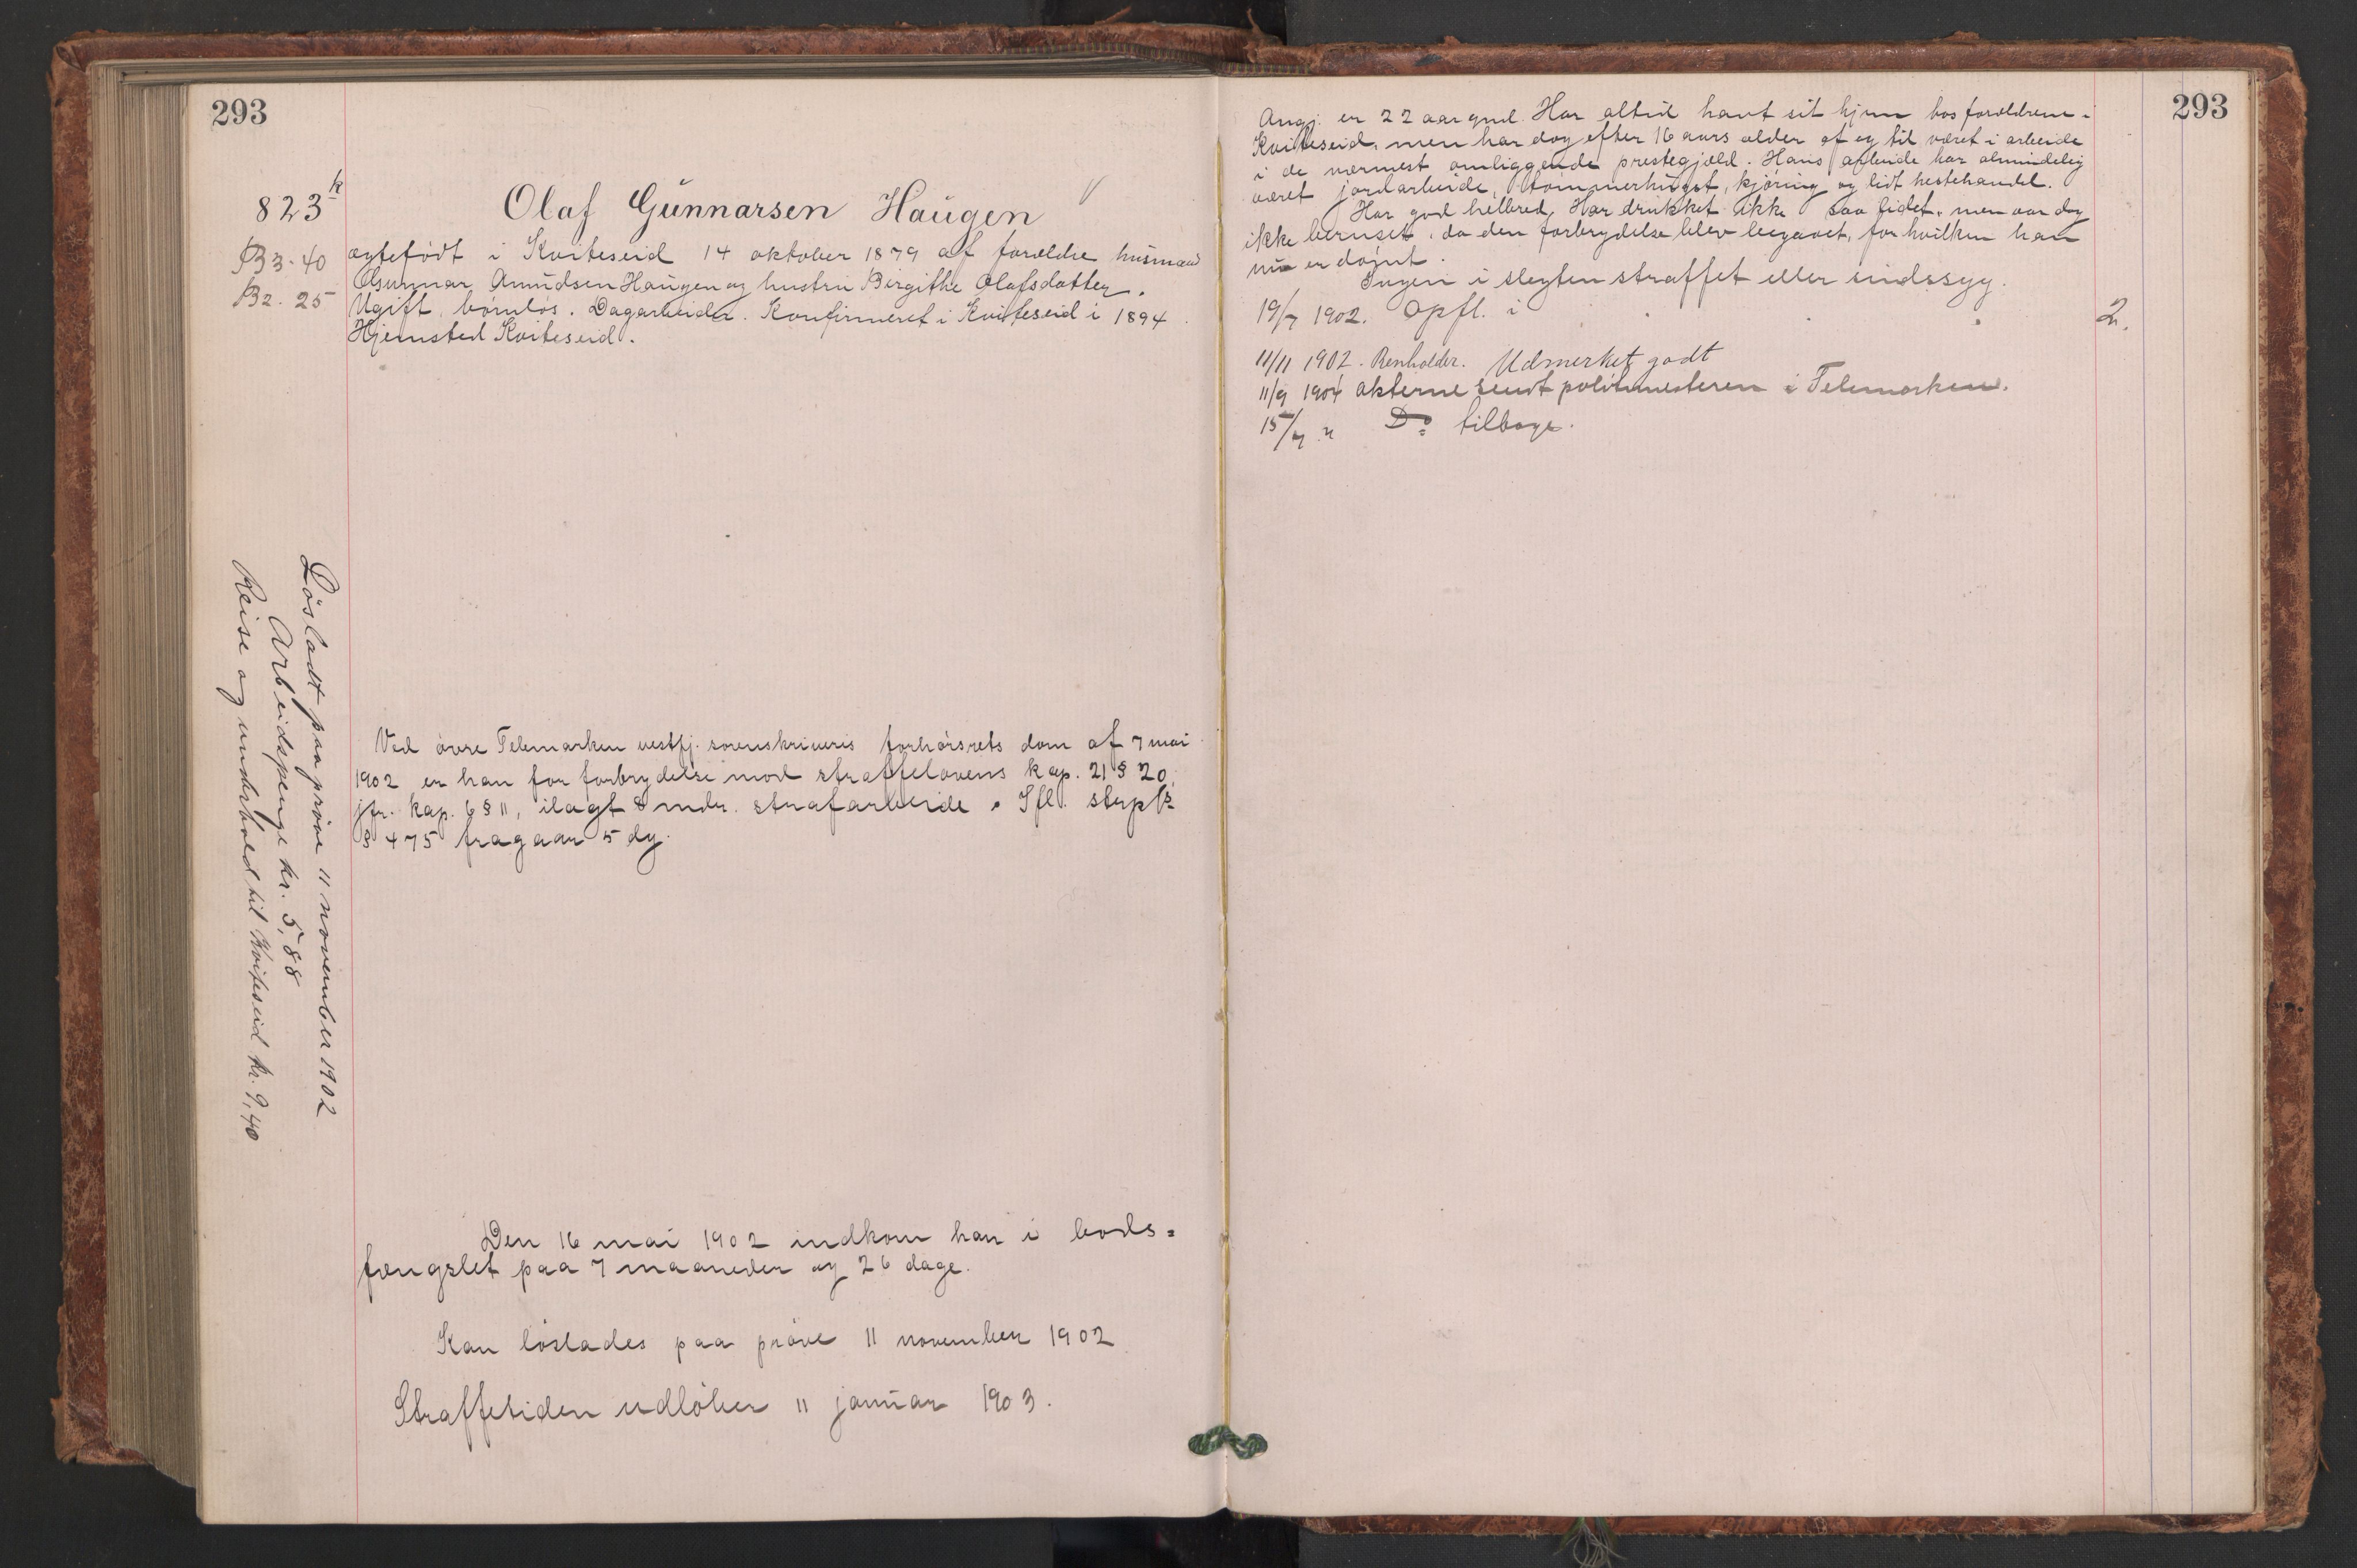 293
823 k
B3. 40
B2. 25
Olaf Gunnarsen Haugen
ægtefødt i Kviteseid 14 oktober 1879 af forældre husmand
Gunnar Amundsen Haugen og hustru Birgithe Olafsdatter.
Ugift, børnløs. Dagarbeider. Konfirmeret i Kviteseid i 1894.
Hjemsted Kviteseid.
Løsladt paa prøve 11 november 1902
Arbeidspenge kr. 5,88
Reise og underhold til Kviteseid kr. 9,40
Ved øvre Telemarken vestfj. sorenskriveris forhørsrets dom af 7 mai
1902 er han for forbrydelse mod straffelovens kap. 21 § 20,
jfr. kap. 6 § 11, ilagt 8 mdr. strafarbeide. Ifl. strpl.
§ 475 fragaar 5 dg.
Den 16 mai 1902 indkom han i bods=
fængslet paa 7 maaneder og 26 dage.
Kan løslades paa prøve 11 november 1902
Straffetiden udløber 11 januar 1903.
293
Angj. er 22 aar gml. Har altid havt sit hjem hos forældrene i
Kviteseid, men har dog efter 16 aars alder af og til været i arbeide
i de nærmest omliggende prestegjæld. Hans arbeide har almindelig
været jordarbeide, tømmerhugst, kjøring og lidt hestehandel.
Har god helbred. Har drukket ikke saa lidet, men var dog
ikke beruset, da den forbrydelse blev begaaet, for hvilken han
nu er dømt.
Ingen i slegten straffet eller sindssyg.
19/7 1902. Opfl. i 2.
11/11 1902. Renholder. Udmerket godt
11/9 1904 akterne sendt politimesteren i Telemarken.
15/9 " Do tilbage.